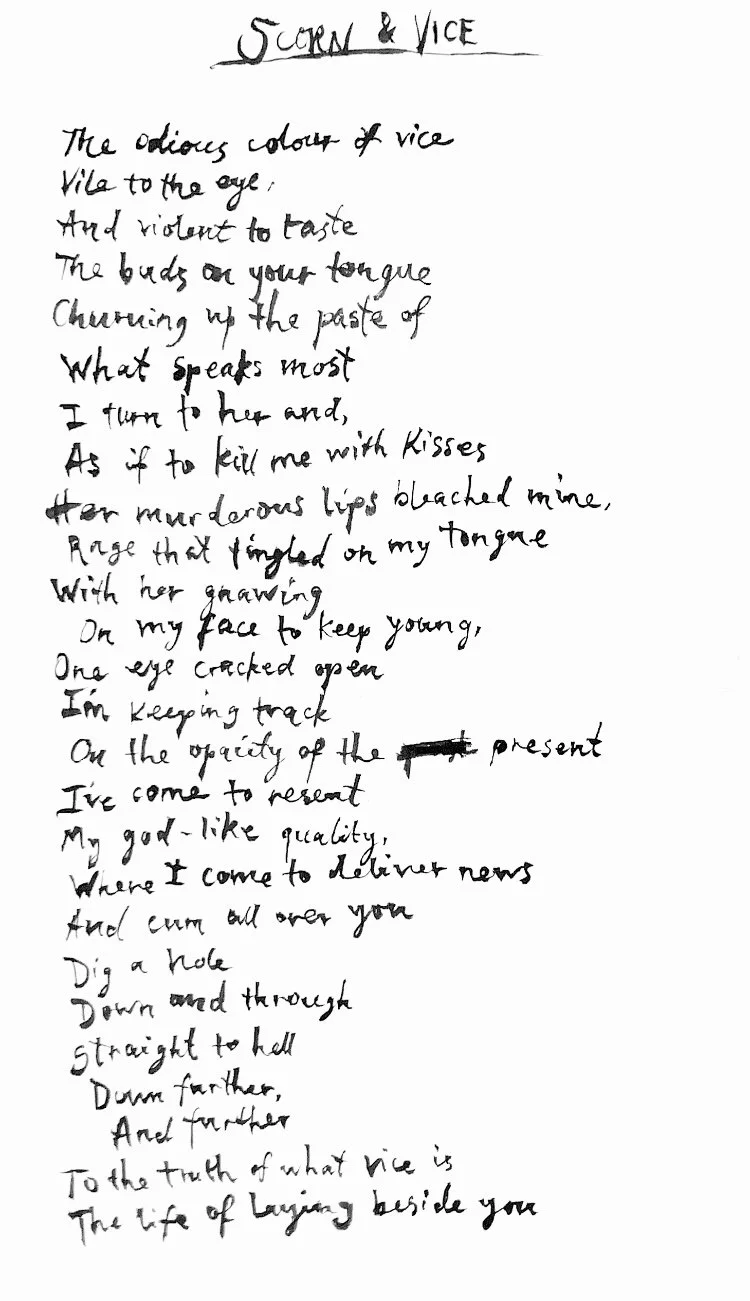 SCORN & VICE
The odious colour of vice
Vile to the eye,
And violent to taste
The buds on your tongue
Churning up the paste of
What speaks most
I turn to her and,
As if to kill me with kisses
Her murderous lips bleached mine,
Rage that tingled on my tongue
With her gnawing
On my face to keep young,
One eye cracked open
I'm keeping track
On the opacity of the present
I've come to resent
My god-like quality,
Where I come to deliver news
And cum all over you
Dig a hole
Down and through
Straight to hell
Down further,
And further
To the truth of what vice is
The life of laying beside you